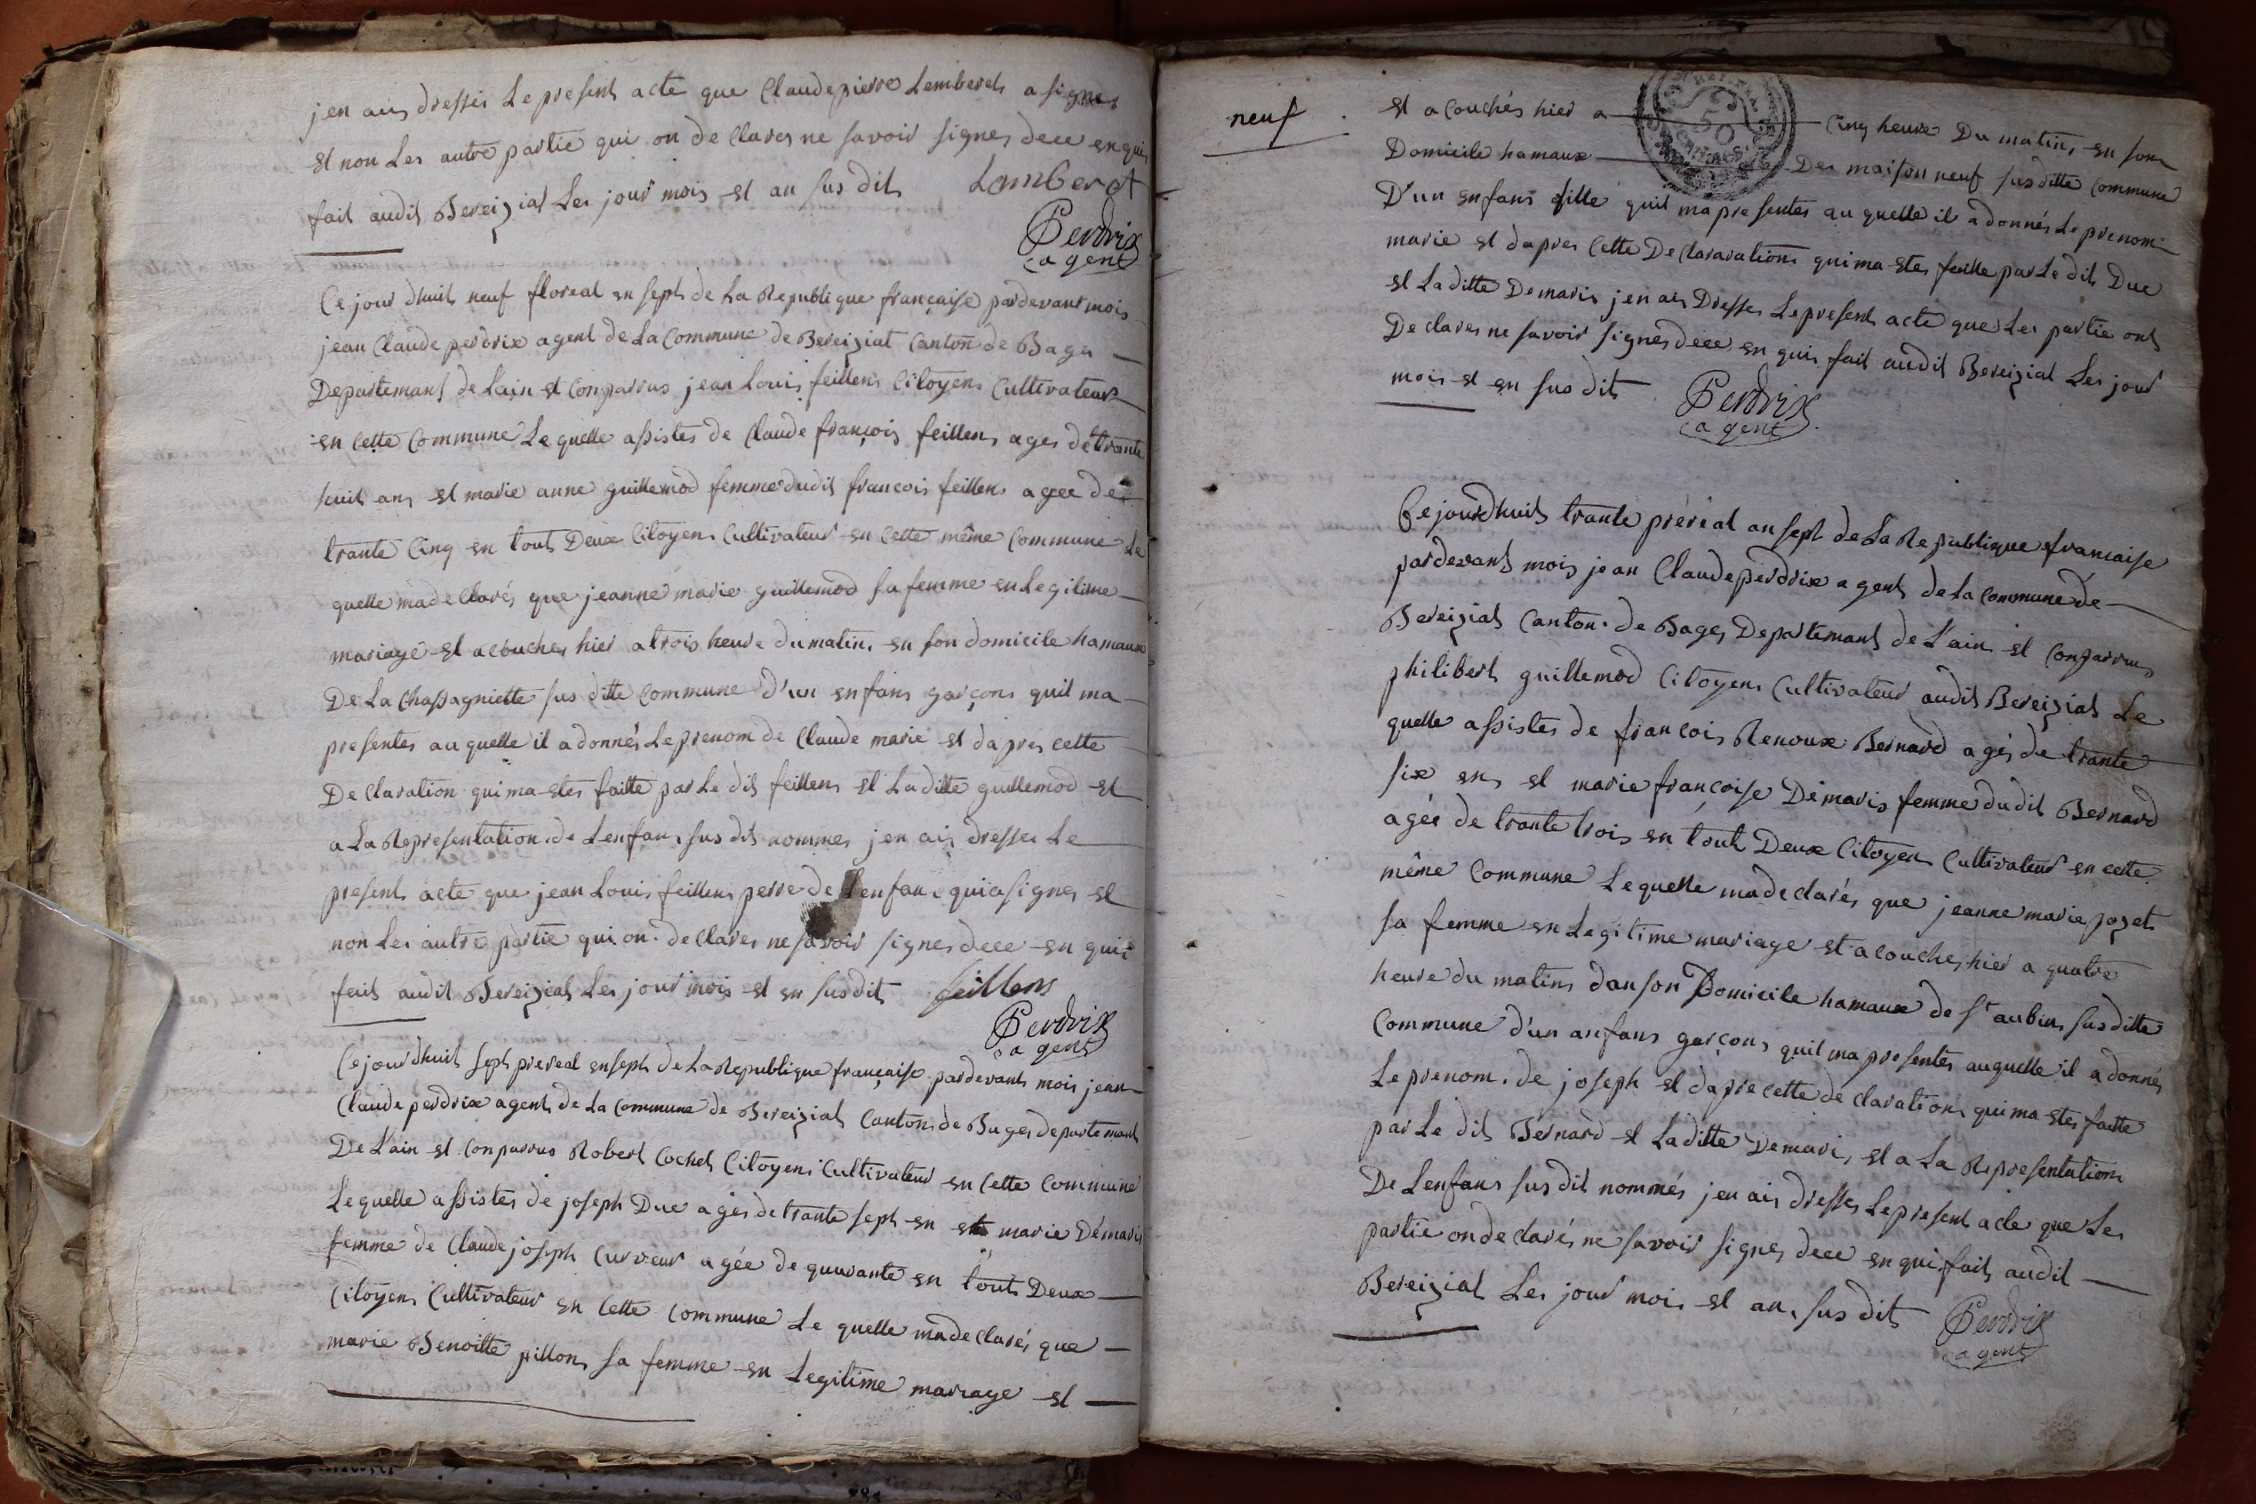 jen ais dresséi Le present acte que Claude pierre Lemberet a signes
et non Les autre partie qui on de Clares ne savoir signes dece enquis
fait audit Bereiziat Les jour mois et an sus dit Lamberet
Perdrix
agent
Ce jour dhuit neuf floreal en sept de La Republique française pardevant mois
jean Claude perdrix agent de La Commune de Bereiziat Canton de Bages
Departemant de Lain et Conparrus jean Louis feillens Citoyens Cultivateur
en cette Commune Le quelle assistes de Claude françois feillens ages de trante
huit ans et marie anne guillemod femme dudit francois feillens agee de
trante Cinq en tout Deux Citoyens Cultivateur en Cette même Commune Le
quelle made Clarés que jeanne marie guillemod sa femme en Legitime
mariage et acouches hier a trois heure du matin en son domicile hamaux
De La Chassagniette sus ditte Commune d'un enfans garçons quil ma
presentes au quelle il a donnés Le prenom de Claude marie et dapres cette
De Claration qui ma etes faitte par Le dit feillens et La ditte guillemod et
a La Representation de Lenfans sus dit nommes jen ais dresses Le
present acte que jean Louis feillens perre de Lenfans qui a signes et
non Les autre partie qui on de Clares ne savoir signes dece en quis
fait audit Bereiziat Les jour mois et en susdit feillens
Perdrix
agent
Ce jourdhuit sept prereal en sept de La Republique française pardevant mois jean
Claude perdrix agent de La Commune de Bereiziat Canton de Bages departemant
De L'ain et Conparrus Robert Cochet Citoyens Cultivateur en Cette Commune
Le quelle assistes de joseph Duc agés de trante sept en et marie Démaris
femme de Claude joseph Curveur agée de quarante en tout Deux
Citoyens Cultivateur en Cette Commune Le quelle made clarés que
marie Benoitte pillon sa femme en Legitime mariage et
neuf
et a Couchés hier a Cinq heure Du matin en son
Domicile hamaux Des maison neuf sus ditte Commune
D'un enfans fille quil ma presentes au quelle il a donnés Le prenom
marie et dapres Cette De Clararations qui ma etes faitte par Le dit Duc
et La ditte Demaris jen ais Dresses Le present acte que Les partie ont
De clares ne savoir signes dece en quis fait audit Bereiziat Les jour
mois et en sus dit Perdrix
agent
Ce jourdhuit trante preréal an sept de La Republique francaise
pardevant mois jean Claude perdrix agent de La Commune de
Bereiziat Canton de Bages Departemant de L'ain et Conparrus
philibert guillemod Citoyens Cultivateur audit Bereiziat Le
quelle assistes de francois Renoux Bernard agés de trante
six ens et marie françoise Démaris femme du dit Bernard
agée de trante trois en tout Deux Citoyens Cultivateur en cette
même Commune Le quelle made clarés que jeanne marie pozet
sa femme en Legitime mariage et a couches hier a quatre
heure du matin dan son Domicile hamaux de St aubin susditte
Commune d'un anfans garçons quil ma presentes auquelle il a donnés
Le prenom de joseph et dapre cette de clarations qui ma etes faitte
par Le dit Bernard et La ditte Demaris et a La Representations
De Lenfans sus dit nommés jen ais dresses Le present acte que Les
partie on de clarés ne savoir signes dece en quis fait audit
Bereiziat Les jour mois et an sus dit Perdrix
agent